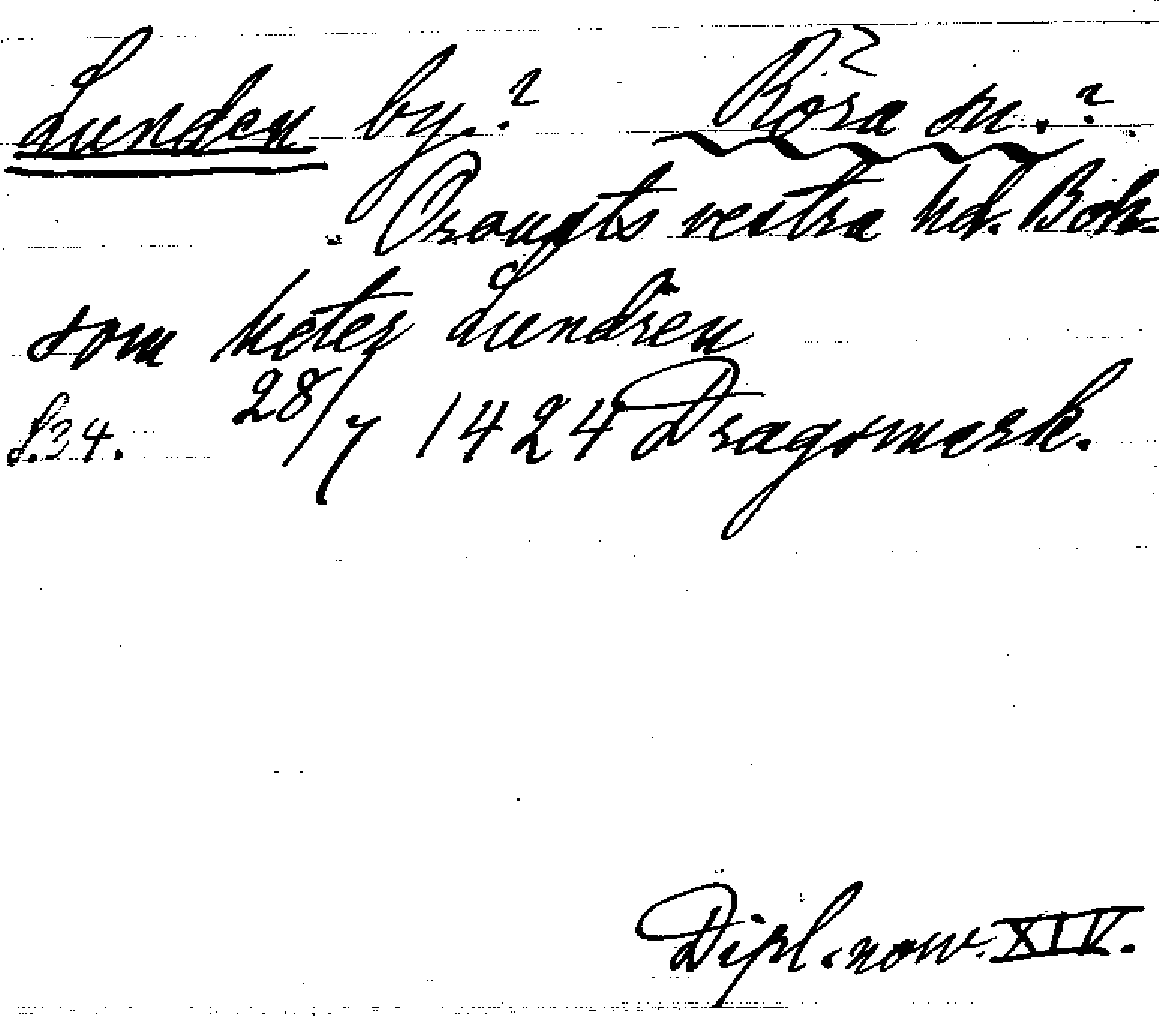 Lunden by.? Röra sn.?
Orousts vestra hd. Boh-
som heter Lundren
s.34. 28/7 1424 Dragsmark.
Dipl. norv. XIV.